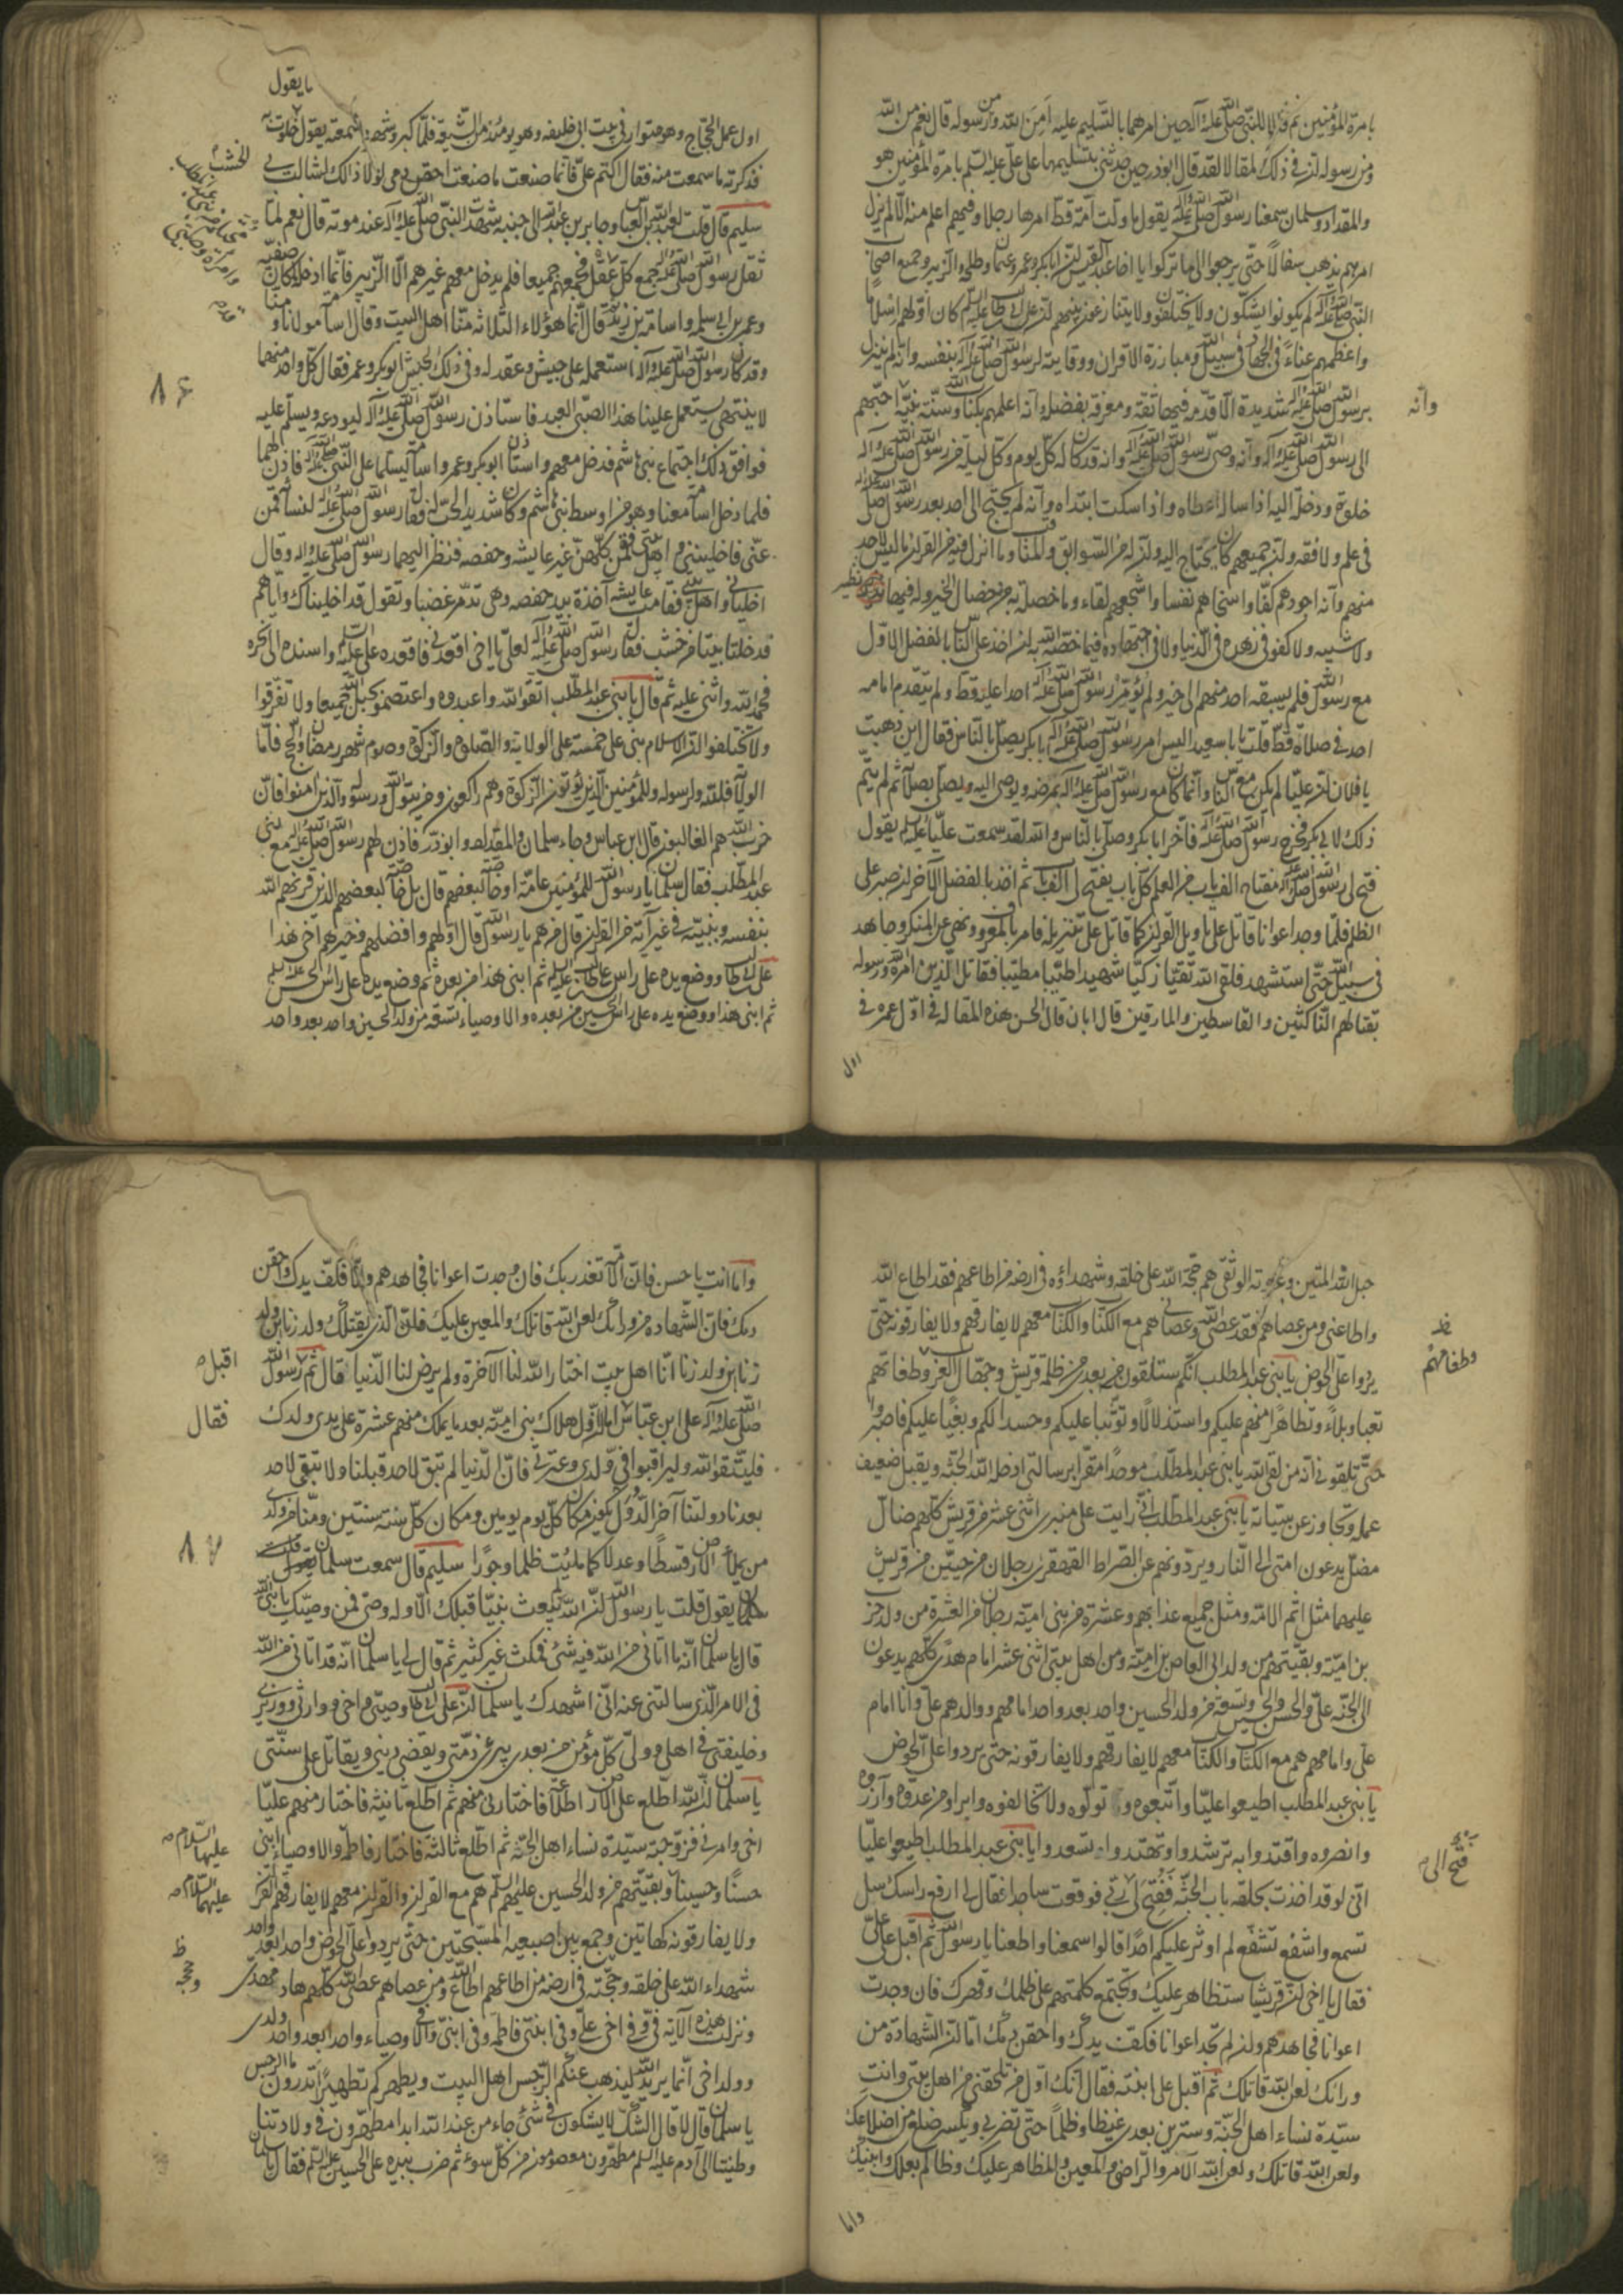 بامرة المؤمنين نعم قد قال للنبى صلى الله عليه وآله حين امرهما بالتسليم عليه أمن الله ومن رسوله قال نعم من الله
ومن رسوله ان فى ذلك لمقالا لقد قال ابوذر حين حدثنى بتسليمها على على عليه السلم بامرة المؤمنين هو
والمقداد وسلمان سمعنا رسول الله صلى الله عليه وآله يقول ما ولت امة قط امرها رجلا وفيهم اعلم منه الا لم يزل
امرهم يذهب سفالاً حتى يرجعوا الى ما تركوا يا اخا عبد القيس ان ابابكر وعمر وعثمان وطلحة والزبير وجميع اصحاب
النبى صلى الله عليه وآله لم يكونوا يشكّون ولا يختلفون ولا يتنازعون بينهم ان على بن ابى طالب عليه السلم كان اولهم اسلاما
واعظمهم عناءً فى الجهاد فى سبيل الله ومبارزة الاقران ووقايته لرسول الله صلى الله عليه وآله بنفسه وانه لم ينزل
برسول الله صلى الله عليه وآله شديدة الا قدمه فيها ثقة ومعرفة بفضله وانه اعلمهم بكتاب الله وسنة نبيه احبهم
وانه
الى رسول الله صلى الله عليه وآله وانه وصى رسول الله صلى الله عليه وآله وانه قد كان له كل يوم وكل ليلة من رسول الله صلى الله عليه وآله
خلوة ودخلة اليه اذا ساله اعطاه واذا سكت ابتداه وانه لم يحتج الى احد بعد رسول الله صلى الله عليه وآله
فى علم ولا فقه وان جميعهم كان يحتاج اليه وان له من السوابق والمناقب وما انزل فيه من القرآن ما ليس لاحد
منهم وانه اجودهم كفّا واسخاهم نفسا واشجعهم لقاء وما خصلة من خصال الخير وله فيها نظير
ولا شبيه ولا كفو فى زهده فى الدنيا ولا فى اجتهاده فيما خصه الله به ان اخذ على الناس بالفضل الاوّل
مع رسول الله فلم يسبقه احد منهم الى خير ولم يؤمّر رسول الله صلى الله عليه وآله احدا عليه قط ولم يتقدم امامه
احد فى صلاة قط قلت يابا سعيد اليس امر رسول الله صلى الله عليه وآله ابابكر يصلى بالناس فقال اين ذهبت
يا فلان ان عليّا لم يكن مع الناس وانما كان مع رسول الله صلى الله عليه وآله يمرضه ويوصى اليه ويصلى بصلاته ثم لم يتم
ذلك لابى بكر فخرج رسول الله صلى الله عليه وآله فاخر ابابكر وصلى بالناس والله لقد سمعت عليّا عليه السلم يقول
فتح لى رسول الله صلى الله عليه وآله مفتاح الف باب من العلم كل باب يفتح لى الف باب ثم اخذ بالفضل الآخر ان صبر على
الظلم فلما وجد اعوانا قاتل على تاويل القرآن كما قاتل على تنزيله فامر بالمعروف ونهى عن المنكر وجاهد
فى سبيل الله حتى استشهد فلقى الله تقيّا زكيّا شهيدا طيّبا مطيّبا فقاتل الذين امره الله ورسوله
بقتالهم الناكثين والقاسطين والمارقين قال ابان قال الحسن هذه المقالة فى اوّل عمره فى
اول
ما يقول
اول عمل الحجاج وهو متوار فى بيت ابى خليفه وهو يومئذ من الشيعة فلما كبر وشهر سمعته يقول خلوت به
فذكرته ما سمعت منه فقال اكتم علىّ فانما صنعت ما صنعت احقن دمى لولا ذالك لشالت بى
الخشب
سليم قال قلت لعبد الله بن العباس وجابر بن عبد الله الى جنبه شهدت النبى صلى الله عليه وآله عند موته قال نعم لما
ثقل رسول الله صلى الله عليه وآله جمع كل فجمعهم جميعا فلم يدخل معهم غيرهم الا الزبير فانما ادخله لمكان صفيه
وعمر بن ابى سلمه واسامة بن زيد ثم قال انما هؤلاء الثلاثه منّا اهل البيت وقال اسامة مولانا ومنا
وقد كان رسول الله صلى الله عليه وآله استعمله على جيش وعقد له وفى ذلك الجيش ابوبكر وعمر فقال كل واحد منهما
٨٤
لا ينتهى يستعمل علينا هذا الصبى العبد فاستاذن رسول الله صلى الله عليه وآله ليودعه ويسلم عليه
فوافق ذلك اجتماع بنى هاشم فدخل معهم واستاذن ابوبكر وعمر واسامة ليسلما على النبى صلى الله عليه وآله فاذن لهما
فلما دخل اسامة معنا وهو من اوسط بنى هاشم وكان شديد الحب له فقال رسول الله صلى الله عليه وآله لنسائه قمن
عنى فاخليننى واهل بيتى فقمن كلهن غير عايشه وحفصه فنظر اليهما رسول الله صلى الله عليه وآله وقال
اخليانى واهل بيتى فقامت عايشه آخذة بيد حفصه وهى تدمر غضبا وتقول قد اخليناك واياهم
فدخلتا بيتا من خشب فقال رسول الله صلى الله عليه وآله لعلى يا اخى اقعدنى فاقعده على عليه السلم واسنده الى نحره
فحمد الله واثنى عليه ثم قال يا بنى عبد المطلب اتقو الله واعبدوه واعتصموا بحبل الله جميعا ولا تفرقوا
ولا تختلفوا ان الاسلام بنى على خمسة على الولاية والصلوة والزكوة وصوم شهر رمضان والحج فاما
الولاية فلله ولرسوله وللمؤمنين الذين يؤتون الزكوة وهم راكعون ومن يتول الله ورسوله والذين امنوا فان
حزب الله هم الغالبون قال ابن عباس وجاء سلمان والمقداد وابوذر فاذن لهم رسول الله صلى الله عليه وآله مع بنى
عبد المطلب فقال سلمان يا رسول الله للمؤمنين عامة او خاصة لبعضهم قال بل خاصة لبعضهم الذين قرنهم الله
بنفسه وبنبيّه فى غير آية من القرآن قال من هم يا رسول الله قال اولهم وافضلهم وخيرهم اخى هذا
على بن ابى طالب ووضع يده على راس على بن ابى طالب عليه السلم ثم ابنى هذا من بعده ثم وضع يده على راس الحسن عليه السلم
ثم ابنى هذا ووضع يده على راس الحسين من بعده والاوصياء تسعة من ولد الحسين واحد بعد واحد
حبل الله المتين وعروته الوثقى هم حجة الله على خلقه وشهداؤه فى ارضه من اطاعهم فقد اطاع الله
واطاعنى ومن عصاهم فقد عصى الله وعصانى هم مع الكتاب والكتاب معهم لا يفارقهم ولا يفارقونه حتى
وطغاتهم
يردوا علىّ الحوض يا بنى عبد المطلب انكم ستلقون من بعدى من ظلمة قريش وجهال العرب وطغاتهم
تعبا وبلاءً وتظاهرا منهم عليكم واستذلالا وتوثبا عليكم وحسدا لكم وبغيا عليكم فاصبروا
حتى تلقونى انه من لقى الله يا بنى عبد المطلب موحدا مقرا برسالتى ادخله الله الجنة ويقبل ضعيف
عمله وتجاوز عن سيئاته يا بنى عبد المطلب انى رايت على منبرى اثنى عشر من قريش كلهم ضال
مضل يدعون امتى الى النار ويردونهم عن الصراط القهقرى رجلان من حيّين من قريش
عليهما مثل اثم الامة ومثل جميع عذابهم وعشرة من بنى امية رجلان من العشرة من ولد حرب
بن امية وبقيتهم من ولد ابى العاص بن امية ومن اهل بيتى اثنى عشر امام هدى كلهم يدعون
الى الجنة على والحسن والحسين وتسعة من ولد الحسين واحد بعد واحد امامهم ووالدهم على وانا امام
على وامامهم هم مع الكتاب والكتاب معهم لا يفارقهم ولا يفارقونه حتى يردوا على الحوض
يا بنى عبد المطلب اطيعوا عليا واتبعوه وتولوه ولا تخالفوه وابراوا من عدوه وآزروه
وانصروه واقتدوا به ترشدوا وتهتدوا وتسعدوا يا بنى عبد المطلب اطيعوا عليّا
فتح الى
انى لو قد اخذت بحلقة باب الجنة ففتح لى ربى فوقعت ساجدا فقال لى ارفع راسك سل
تسمع واشفع تشفّع لم اوثر عليكم احدا قالوا سمعنا واطعنا يا رسول الله ثم اقبل على علىّ
فقال يا اخى ان قريشا ستظاهر عليك وتجتمع كلمتهم على ظلمك وقهرك فان وجدت
اعوانا فجاهدهم وان لم تجد اعوانا فكف يدك واحقن دمك اما ان الشهادة من
ورائك لعن الله قاتلك ثم اقبل على ابنته فقال انك اول من تلحقنى من اهل بيتى وانت
سيدة نساء اهل الجنة وسترين بعدى غيظا وظلما حتى تضربى ويكسر ضلع من اضلاعك
ولعن الله قاتلك ولعن الله الآمر والراضى والمعين والمظاهر عليك وظالم بعلك وابنيك
واما
واما انت يا حسن فان الامة تغدر بك فان وجدت اعوانا فجاهدهم والا فكف يدك واحقن
دمك فان الشهادة من ورائك لعن الله قاتلك والمعين عليك فان الذى يقتلك ولد زنا بن ولد
اقبل
زنا بن ولد زنا انا اهل بيت اختار الله لنا الآخرة ولم يرض لنا الدنيا قال ثم رسول الله
فقال
صلى الله عليه وآله على ابن عباس اما ان اول هلاك بنى امية بعد ما يملك منهم عشرة على يدى ولدك
فليتقوا الله وليراقبوا فى ولدى وعترتى فان الدنيا لم تبق لاحد قبلنا ولا تبقى لاحد
بعدنا دولتنا آخر الدول يكون مكان كل يوم يومين ومكان كل سنة سنتين ومنا من ولدى
من يملأ الارض قسطا وعدلا كما ملئت ظلما وجورا سليم قال سمعت سلمان
٨٧
يقول قلت يا رسول الله ان الله لم يبعث نبيّا قبلك الا وله وصى فمن وصيك يا نبى الله
قال يا سلمان انه ما اتانى من الله فيه شئ فمكث غير كثير ثم قال لى يا سلمان انه قد اتانى من الله
فى الامر الذى سالتنى عنه انى اشهدك يا سلمان ان على بن ابى طالب وصيى واخى ووارثى ووزيرى
وخليفتى فى اهلى وولى كل مؤمن من بعدى يبرئ ذمتى ويقضى دينى ويقاتل على سنتى
يا سلمان ان الله اطلع على الارض اطلاعة فاختارنى منهم ثم اطلع ثانية فاختار منهم عليا
اخى وامرنى فزوجته سيدة نساء اهل الجنة ثم اطلع ثالثة فاختار فاطمة والاوصياء ابنى
عليهما السلام
حسنا وحسينا وبقيتهم من ولد الحسين عليهم السلم هم مع القرآن والقرآن معهم لا يفارقهم القرآن
عليهما السلام
ولا يفارقونه كهاتين وجمع بين اصبعيه المسبحتين حتى يردوا على الحوض واحد بعد واحد
شهداء الله على خلقه وحجته فى ارضه من اطاعهم اطاع الله ومن عصاهم عصى الله كلهم هاد مهدى
وحججه
ونزلت هذه الآية فىّ وفى اخى على وفى ابنتى فاطمة وفى ابنىّ والاوصياء واحدا بعد واحد ولدى
وولد اخى انما يريد الله ليذهب عنكم الرجس اهل البيت ويطهركم تطهيرا اتدرون ما الرجس
يا سلمان قال لا قال الشك لا يشكون فى شئ جاء من عند الله ابدا مطهرون فى ولادتنا
وطينتنا الى آدم عليه السلم مطهرون معصومون من كل سوء ثم ضرب بيده على الحسين عليه السلم فقال يا سلمان